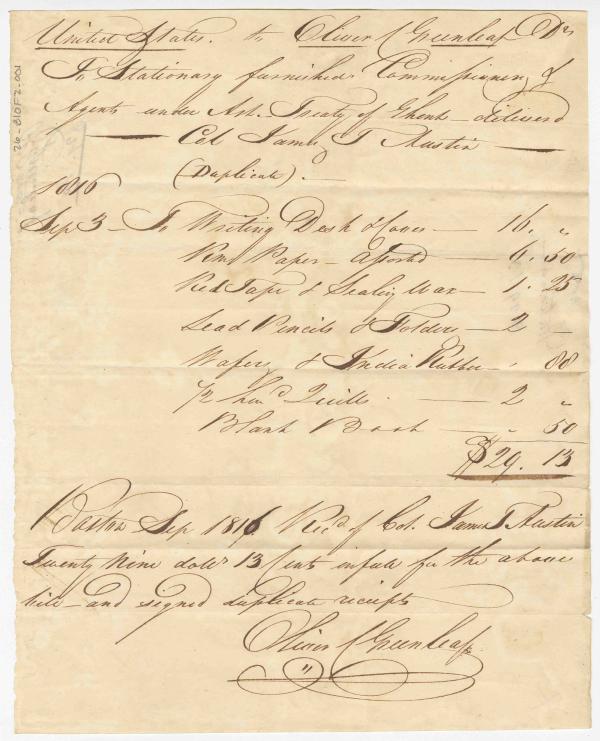 United States. to Oliver C Greenleaf Dr
To Stationary furnished Commissioners &
Agents under Art. Treaty of Ghent - delivered
Col James T Austin
(Duplicate).
1816
Sep 3 - To Writing Desk & Cover - 16. "
Rms Paper - Assorted - 6. 50
Red Tape & Sealing Wax - 1. 25
Lead Pencils & Folders - 2 -
Wafers & India Rubber - . 88
1/2 hund Quills. - 2 "
Blank Book - " 50
$29. 13
Boston Sep 1816 Recd of Col. James T Austin
Twenty Nine dols 13 Cents in full for the above
bill - and signed duplicate receipts
Oliver C Greenleaf
26-810F2-001